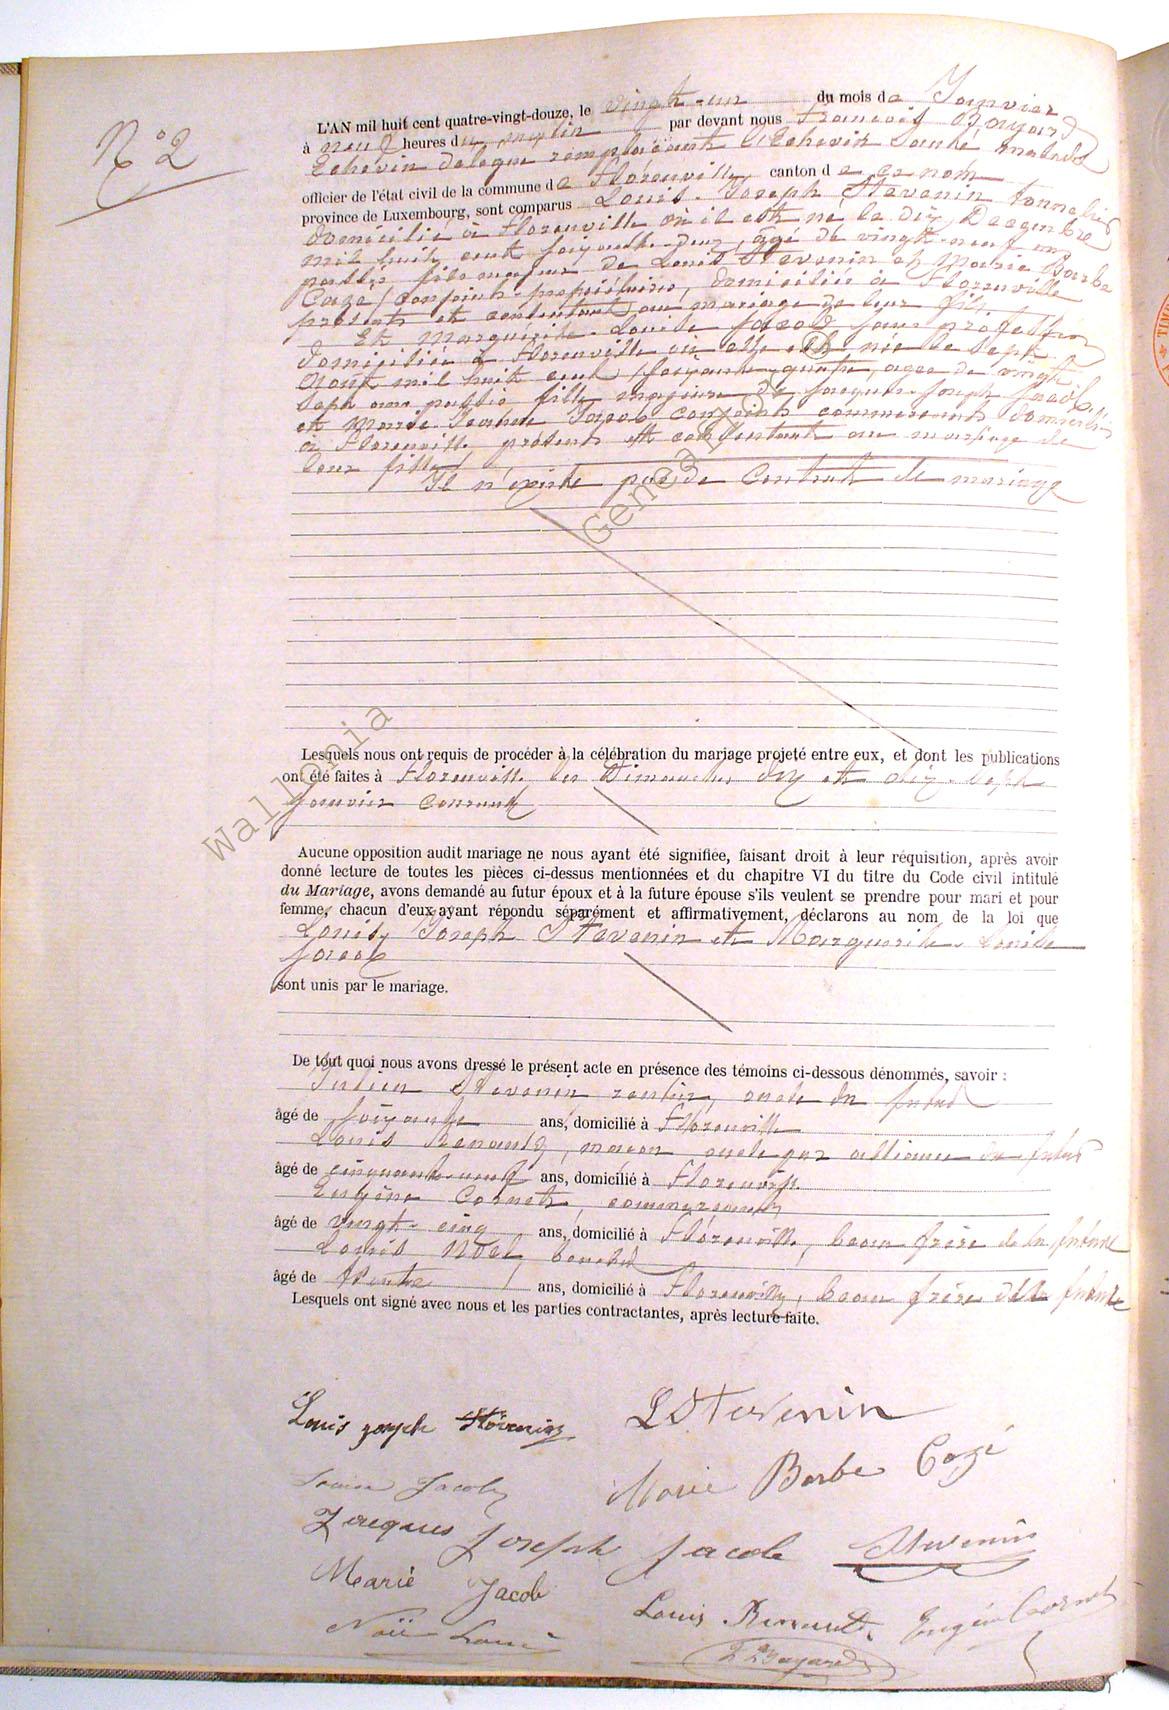 N° 2
L'AN mil huit cent quatre-vingt-douze, le vingt-un du mois de Janvier
à neuf heures du matin par devant nous François Bayard
Echevin délégué remplaçant l'Echevin malade
officier de l'état civil de la commune de Florenville, canton de ce nom
province de Luxembourg, sont comparus Louis-Joseph Stevenin tonnelier
domicilié à Florenville où il est né le dix Décembre
mil huit cent soixante-deux, âgé de vingt-neuf ans
passés, fils majeur de Louis Stevenin et Marie Barbe
Cozé, conjoints propriétaires, domiciliés à Florenville
présents et consentant au mariage de leur fils,
Et Marguerite-Louise Jacob sans profession
domiciliée à Florenville où elle est née le sept
Août mil huit cent soixante-quatre, âgée de vingt-
sept ans passés fille majeure de Jacques-Joseph Jacob
et Marie Jacob conjoints commerçants domiciliés
à Florenville présents et consentant au mariage de
leur fille,
Il n'existe pas de Contrat de mariage
Lesquels nous ont requis de procéder à la célébration du mariage projeté entre eux, et dont les publications
ont été faites à Florenville les Dimanches dix et dix-sept
Janvier Courant
Aucune opposition audit mariage ne nous ayant été signifiée, faisant droit à leur réquisition, après avoir
donné lecture de toutes les pièces ci-dessus mentionnées et du chapitre VI du titre du Code civil intitulé
du Mariage, avons demandé au futur époux et à la future épouse s'ils veulent se prendre pour mari et pour
femme, chacun d'eux ayant répondu séparément et affirmativement, déclarons au nom de la loi que
Louis, Joseph Stevenin et Marguerite-Louise
Jacob
sont unis par le mariage.
De tout quoi nous avons dressé le présent acte en présence des témoins ci-dessous dénommés, savoir :
Julien Stevenin rentier, oncle du futur
âgé de soixante ans, domicilié à Florenville
Louis Renault, maçon oncle par alliance du futur
âgé de cinquante-neuf ans, domicilié à Florenville
Eugène Cornet, commerçant
âgé de vingt-cinq ans, domicilié à Florenville, beau frère de la future
Louis Noël, boucher
âgé de trente ans, domicilié à Florenville, beau frère de la future
Lesquels ont signé avec nous et les parties contractantes, après lecture faite.
Louis joseph Stévenin LStevenin
Louise Jacob Marie Barbe Cozé
Jacques Joseph Jacob Stevenin
Marie Jacob Louis Renault. Eugène Cornet
Noël Louis Bayard
Wallonia Geneanet